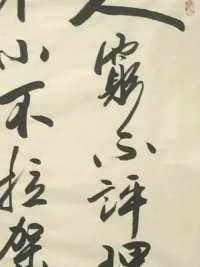 人窮不評理
才小不拉架